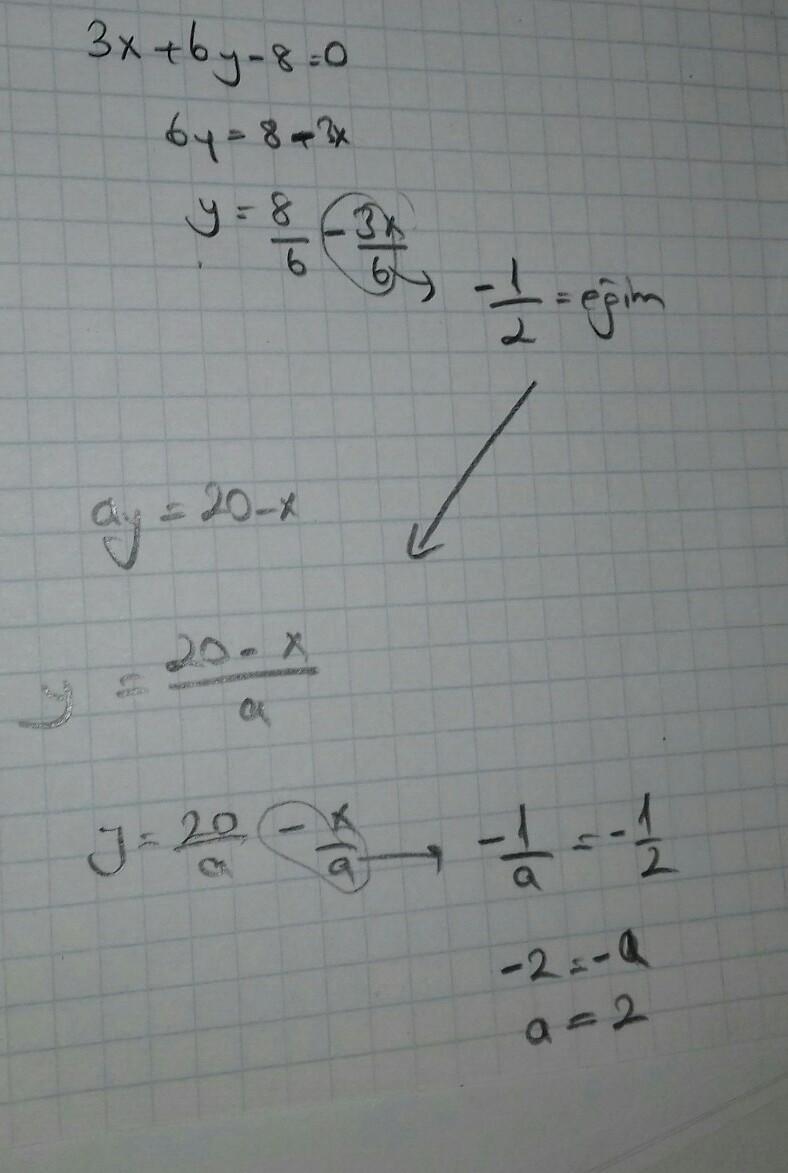 3x+6y-8=0
6y=8-3x
y=8/6-3x/6
-1/2=eğim
ay=20-x
y=20-x/a
y=20/a-x/a → -1/a=-1/2
-2=-a
a=2